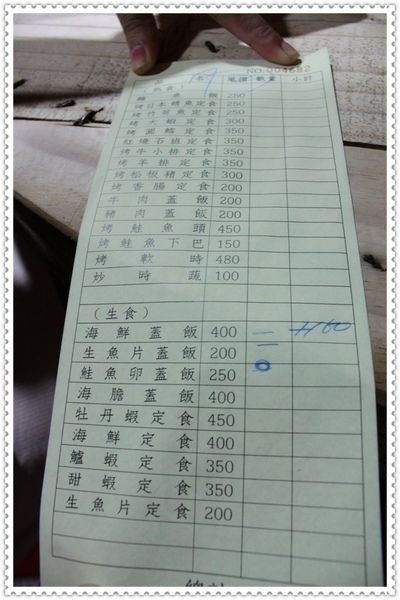 NO 004682
單價 數量 小計
(熟食)
鰻魚飯 250
烤日本鯖魚定食 250
烤竹筴魚定食 250
烤大蝦定食 300
烤圓鱈定食 350
紅燒石斑定食 350
烤牛小排定食 350
烤羊排定食 350
烤松板豬定食 300
烤香腸定食 200
牛肉蓋飯 200
豬肉蓋飯 200
烤鮭魚頭 450
烤鮭魚下巴 150
烤軟時 480
炒時蔬 100
(生食)
海鮮蓋飯 400
生魚片蓋飯 200
鮭魚卵蓋飯 250
海膽蓋飯 400
牡丹蝦定食 450
海鮮定食 400
鱸蝦定食 350
甜蝦定食 350
生魚片定食 200